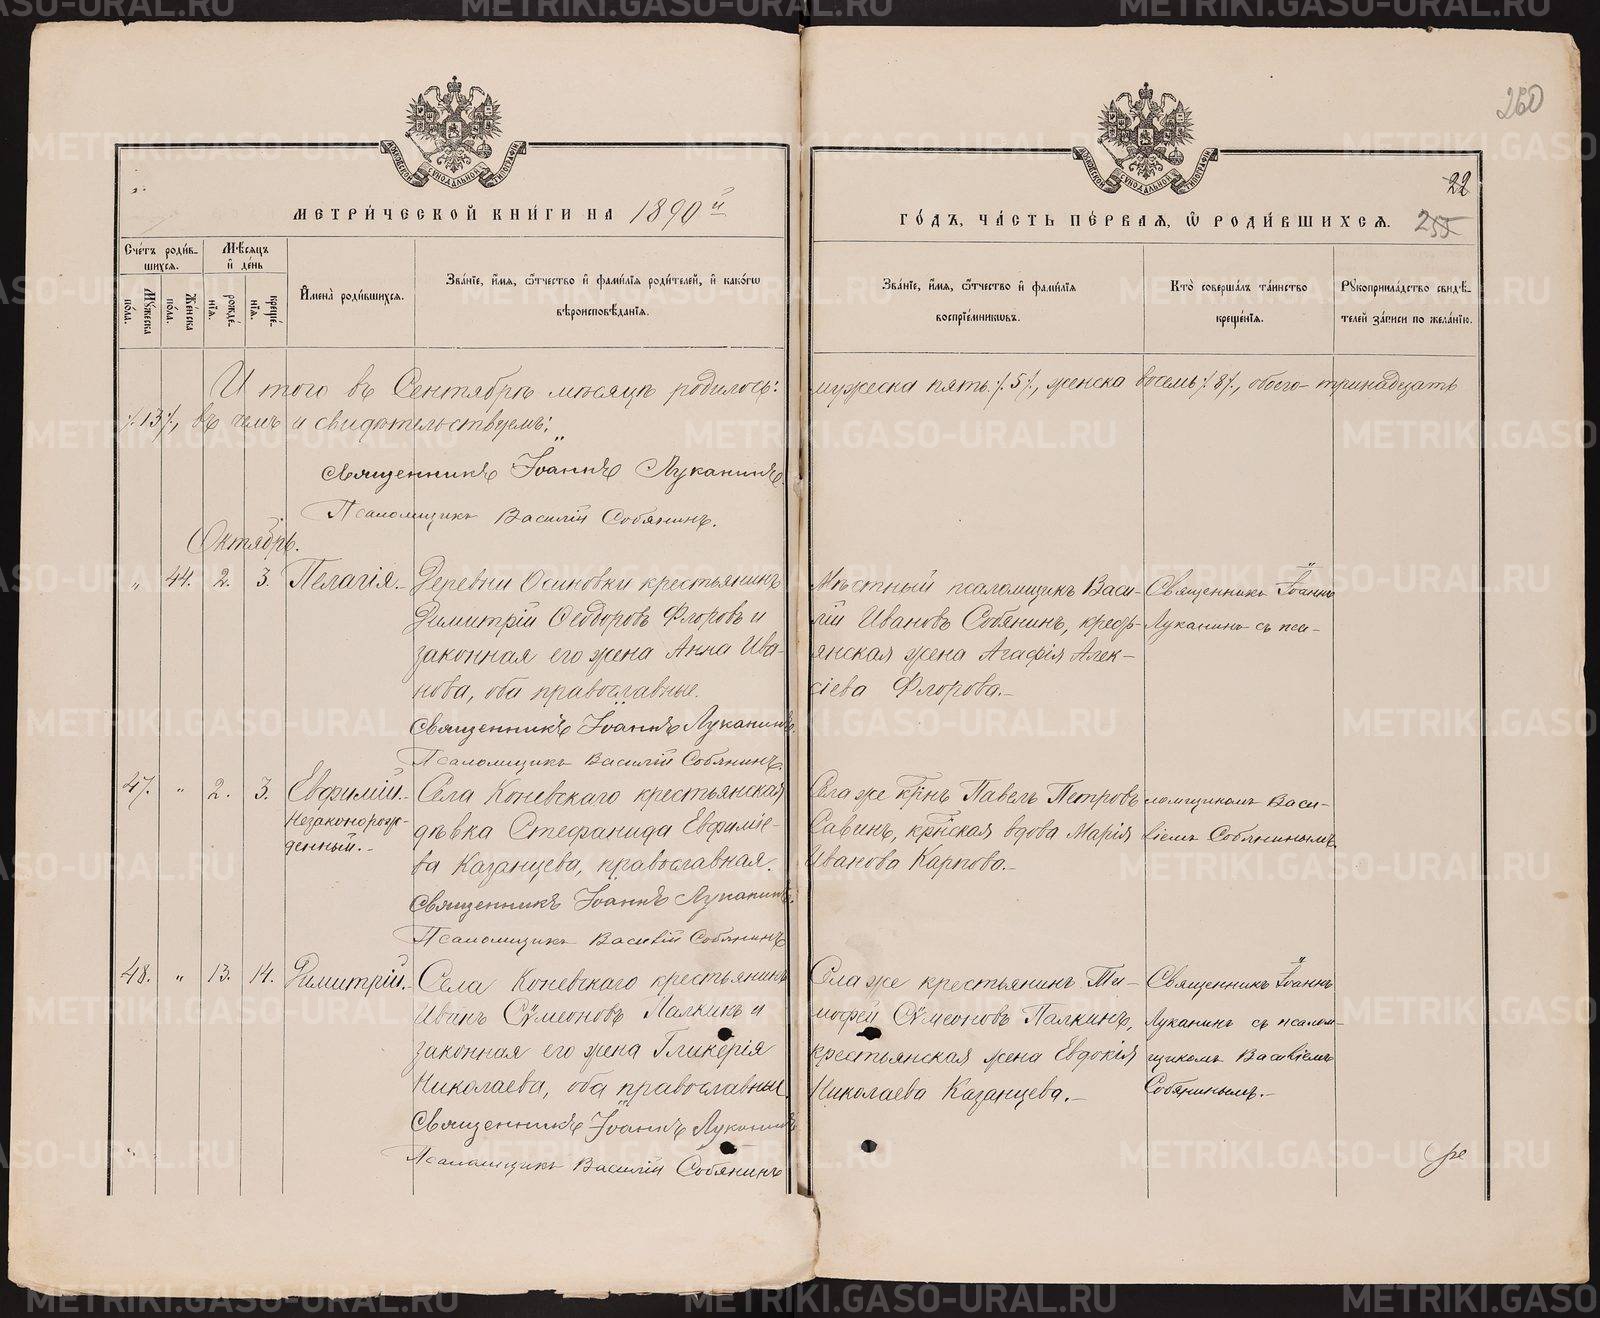 260
МОСКОВСКОЙ СѴНОДАЛЬНОЙ ТИПОГРАФІИ
МОСКОВСКОЙ СѴНОДАЛЬНОЙ ТИПОГРАФІИ
22
МЕТРИ́ЧЕСКОЙ КНИ́ГИ НА 1890й
ГО́ДЪ, ЧА́СТЬ ПЕ́РВАЯ, Ѿ РОДИ́ВШИХСЯ. 255
Сче́тъ роди́в-
шихся.
Мѣ́сяцъ
и҆ де́нь
Мꙋ́жеска по́ла.
Же́нска по́ла.
рожде́-
нїѧ.
креще́-
нїѧ.
И҆мена̀ роди́вшихся.
Зва́нїе, и҆́мѧ, ѻ҆́тчество и҆ фами́лїѧ роди́телей, и҆ како́гѡ
вѣроисповѣ́данїѧ.
Зва́нїе, и҆́мѧ, ѻ҆́тчество и҆ фами́лїѧ
воспрїе́мникѡвъ.
Кто̀ соверша́лъ та́инство
креще́нїѧ.
Рꙋкоприкла́дство свидѣ́-
телей за́писи по жела́нїю.
Итого въ Сентябрѣ мѣсяцѣ родилось:
мужеска пять ./.5./., женска восемь ./.8./., обоего тринадцать
./.13./., въ чемъ и свидѣтельствуемъ:
Священникъ Іоаннъ Луканинъ.
Псаломщикъ Василій Собянинъ.
Октябрь.
„ 44. 2. 3. Пелагія.
Деревни Осиновки крестьянинъ
Димитрій Ѳеодоровъ Флоровъ и
законная его жена Анна Ива-
нова, оба православные.
Священникъ Іоаннъ Луканинъ.
Псаломщикъ Василій Собянинъ.
Мѣстный псаломщикъ Васи-
лій Ивановъ Собянинъ, кресть-
янская жена Агафія Алек-
сіева Флорова.
Священникъ Іоаннъ
Луканинъ съ пса-
47. „ 2. 3. Евфимій.
Незаконорож-
денный.
Села Коневскаго крестьянская
дѣвка Стефанида Евфиміе-
ва Казанцева, православная.
Священникъ Іоаннъ Луканинъ.
Псаломщикъ Василій Собянинъ
Села же крїнъ Павелъ Петровъ
Савинъ, крїнская вдова Марія
Иванова Карпова.
ломщикомъ Васи-
ліемъ Собянинымъ.
48. „ 13. 14. Димитрій.
Села Коневскаго крестьянинъ
Иванъ Сѵмеоновъ Палкинъ и
законная его жена Гликерія
Николаева, оба православные.
Священникъ Іоаннъ Луканинъ
Псаломщикъ Василій Собянинъ
Села же крестьянинъ Ти-
мофей Сѵмеоновъ Палкинъ,
крестьянская жена Евдокія
Николаева Казанцева.
Священникъ Іоаннъ
Луканинъ съ псалом-
щикомъ Василіемъ
Собянинымъ.
METRIKI.GASO-URAL.RU